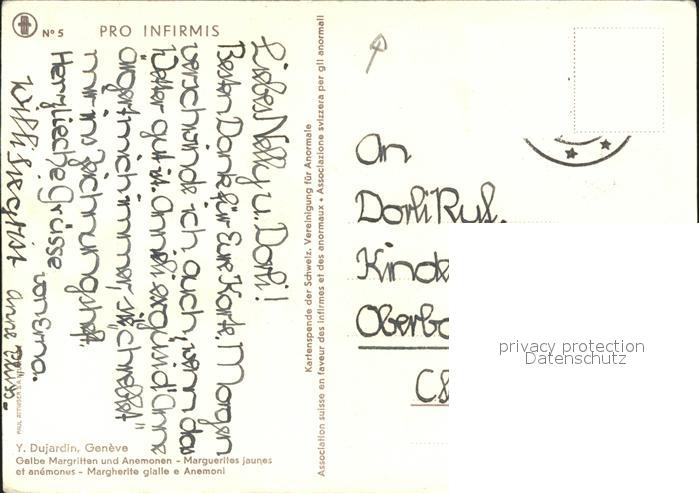 Nº 5 PRO INFIRMIS
Liebes Nelly u. Dorli!
Besten Dank für Eure Karte. Morgen
verschwinde ich auch, wenn das
Wetter gut ist. Anneliserg und Anne
ärgern mich immer,
mir ins Zeichnungsheft.
Herzlieche Grüsse von Erna.
Willi Siegrist
Y. Dujardin, Genève
Gelbe Margritten und Anemonen - Marguerites jaunes
et anémones - Margherite gialle e Anemoni
Kartenspende der Schweiz. Vereinigung für Anormale
Association suisse en faveur des infirmes et des anormaux • Associazione svizzera per gli anormali
An
Dorli Ruf.
Kinde
Oberbo
privacy protection
Datenschutz